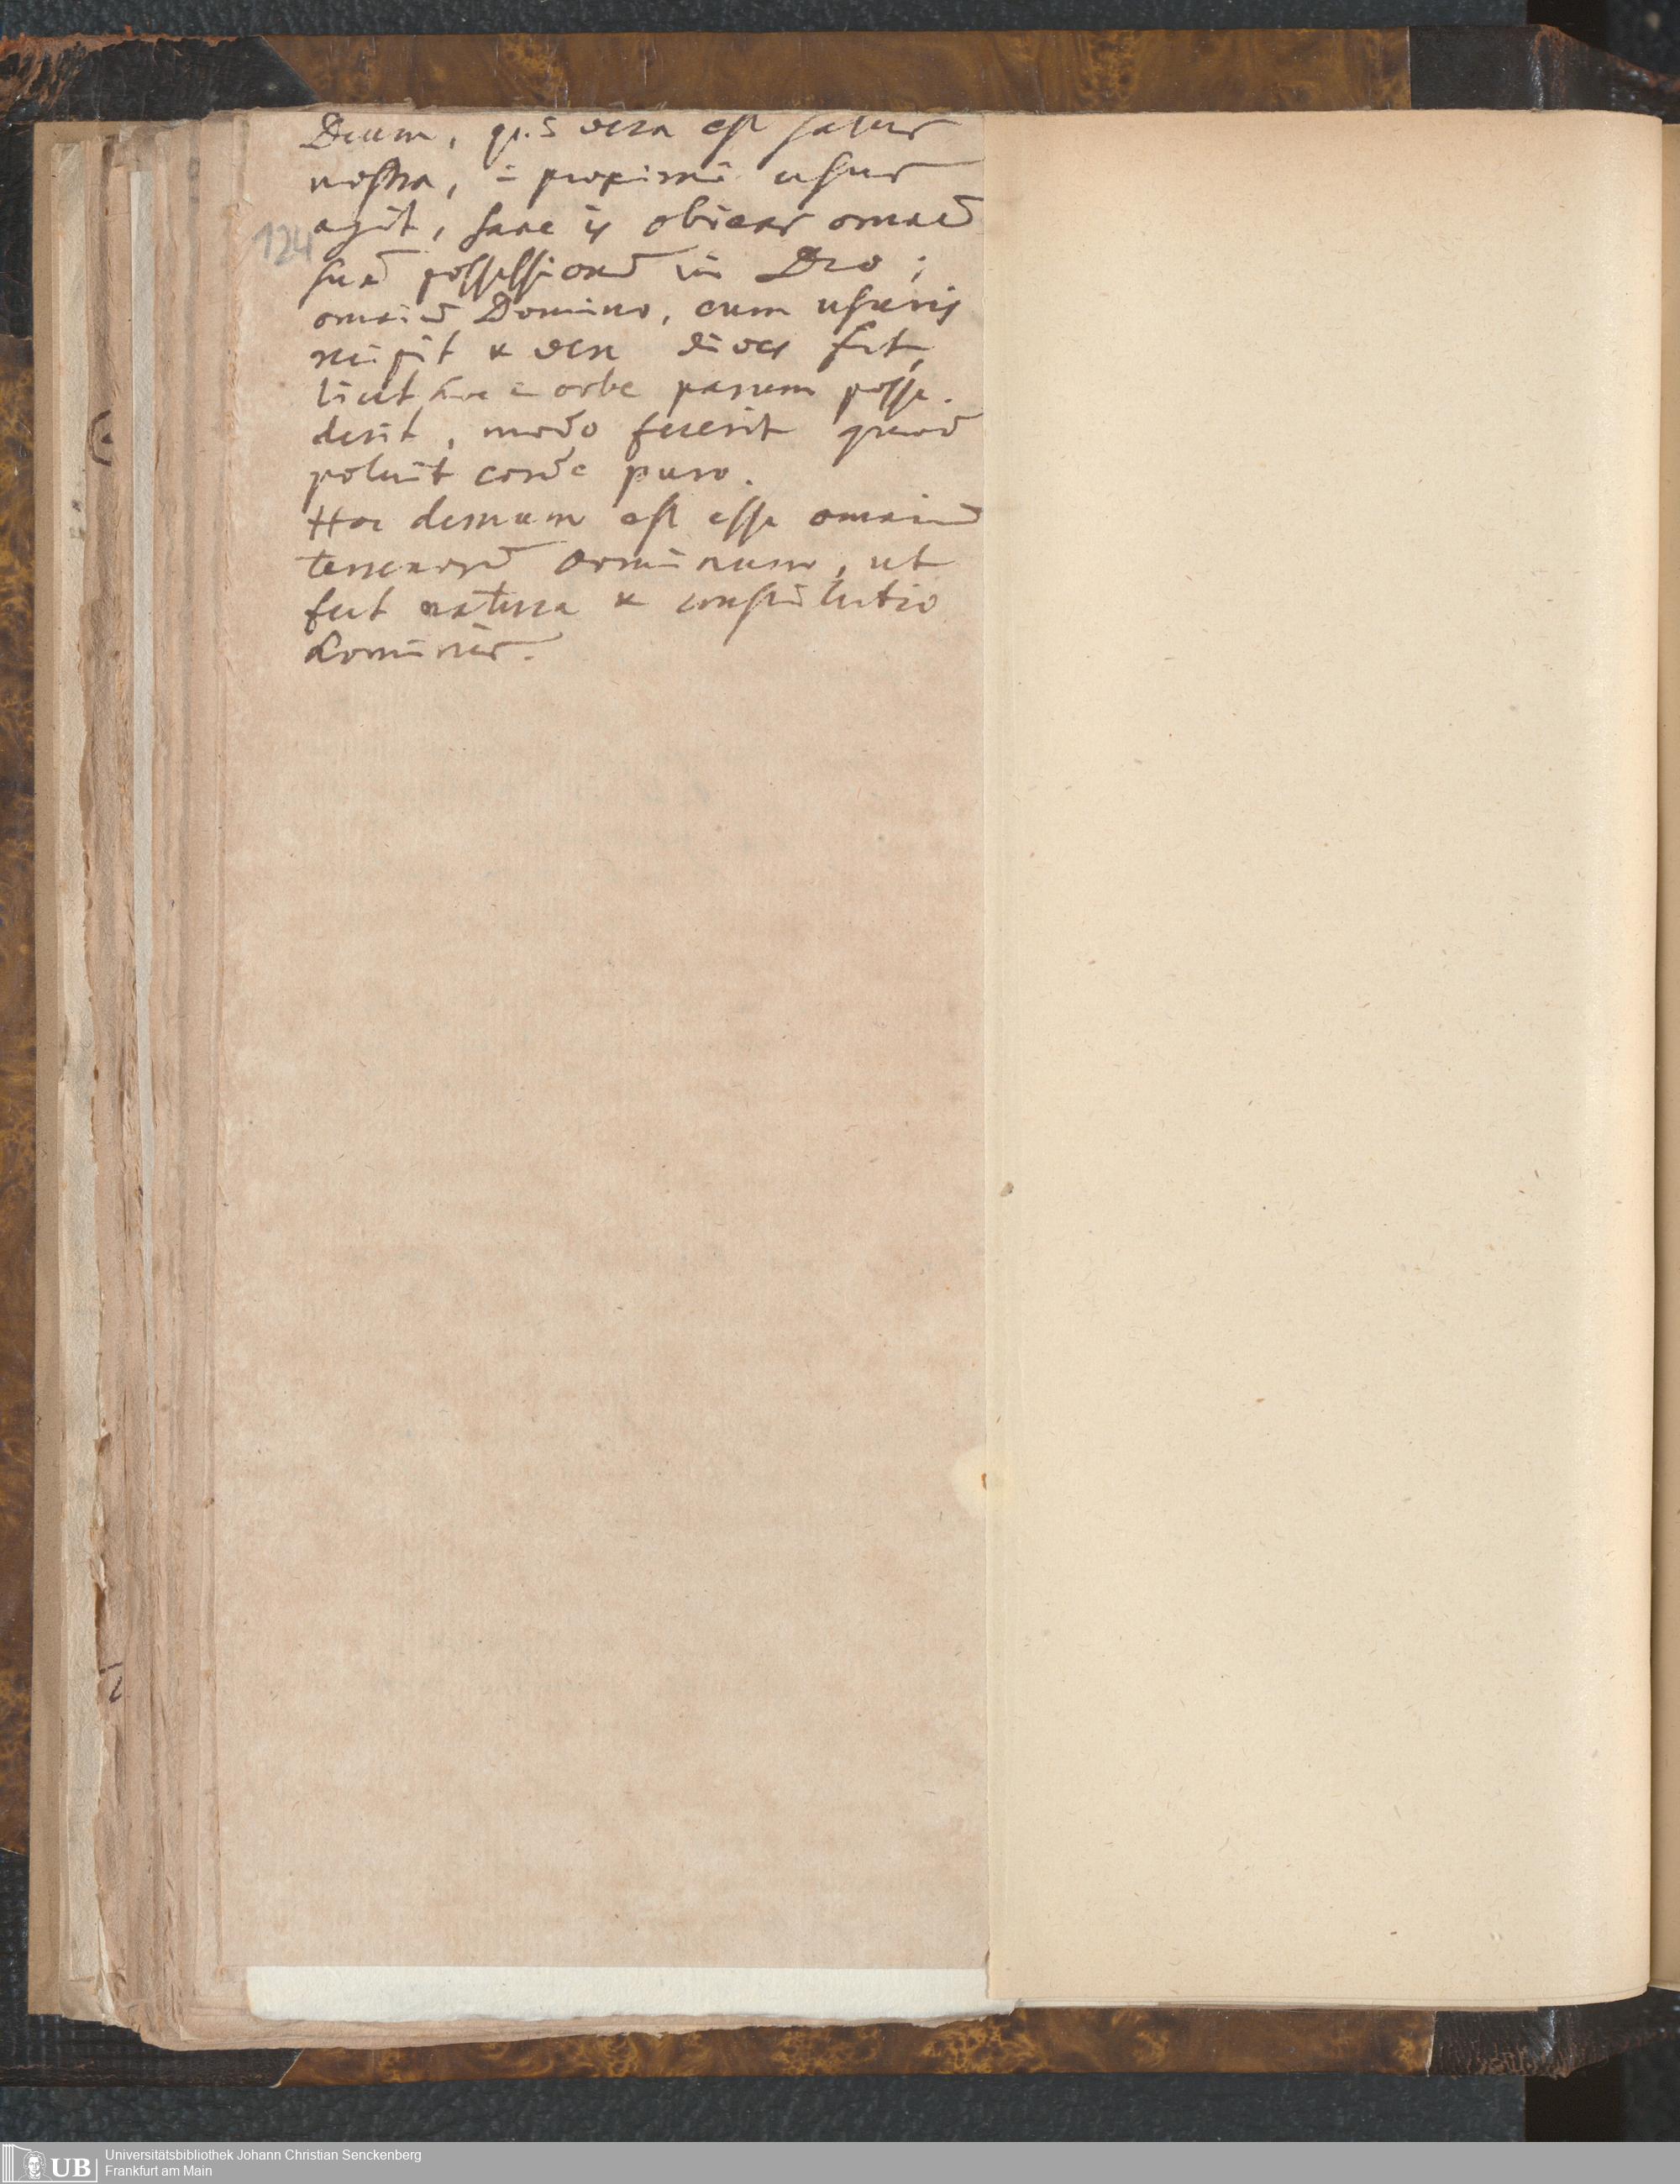 Deum, qs vera est salus
nostra, i proximi usus
agit, sane is obicas omnē
suā possessionē in Deo;
124
omniū Domino, cum usuris
recipit & vere dives fit,
licet in orbe parum posse-
derit, modo fecerit quod
potuit corde puro.
Hoc demum est esse omniū
terrenorū dominum, ut
fert natura & constitutio
hominis.
Universitätsbibliothek Johann Christian Senckenberg
Frankfurt am Main
UB